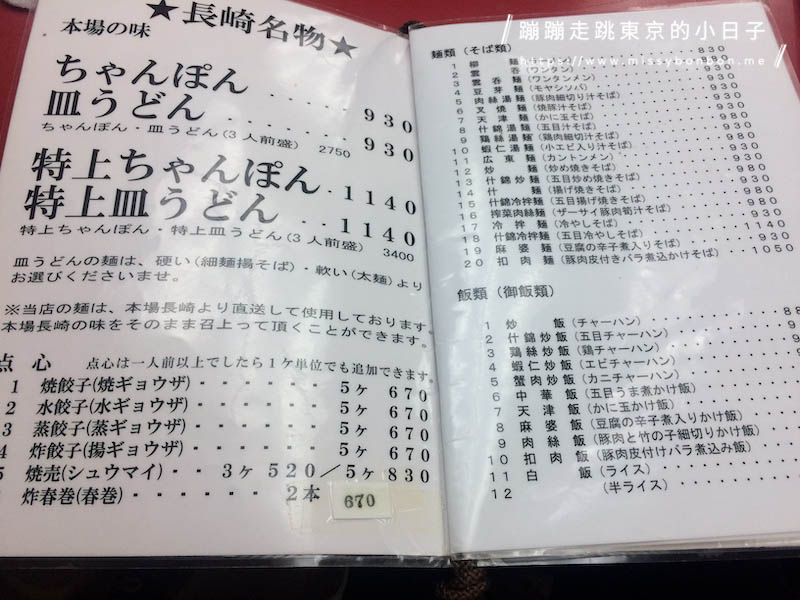 本場の味
★長崎名物★
ちゃんぽん
皿うどん ・・・・ 930
・・・・ 930
ちゃんぽん・皿うどん(3人前盛) 2750
特上ちゃんぽん ・ 1140
特上皿うどん ・・ 1140
特上ちゃんぽん・特上皿うどん(3人前盛) 3400
皿うどんの麺は、硬い(細麺揚そば)・軟い(太麺)より
お選びくださいませ。
※当店の麺は、本場長崎より直送して使用しております。
本場長崎の味をそのまま召上って頂くことができます。
点心 点心は一人前以上でしたら1ケ単位でも追加できます。
1 焼餃子(焼ギョウザ)・・・・・・ 5ケ 670
2 水餃子(水ギョウザ)・・・・・・ 5ケ 670
3 蒸餃子(蒸ギョウザ)・・・・・・ 5ケ 670
4 炸餃子(揚ギョウザ)・・・・・・ 5ケ 670
5 焼売(シュウマイ)・・ 3ケ 520/5ケ 830
炸春巻(春巻)・・・・・・ 2本 670
蹦蹦走跳東京的小日子
https://www.missybonbon.me
麺類(そば類)
1 柳麺 830
2 雲呑(ワンタン)
3 雲呑麺(ワンタンメン)
4 豆芽麺(モヤシソバ)
5 肉絲湯麺(豚肉細切り汁そば)
6 叉焼麺(焼豚汁そば)
7 天津麺(かに玉そば)
8 什錦湯麺(五目汁そば)
9 鶏絲湯麺(鶏肉細切汁そば)
10 蝦仁湯麺(小エビ入り汁そば)
11 広東麺(カントンメン)
12 炒麺(炒め焼きそば)
13 什錦炒麺(五目炒め焼きそば)
14 什麺(揚げ焼きそば)
15 什錦冷拌麺(五目揚げ焼きそば)
16 搾菜肉絲麺(ザーサイ豚肉筍汁そば)
17 冷拌麺(冷やしそば)
18 什錦冷拌麺(五目冷やしそば) 1140
19 麻婆麺(豆腐の辛子煮入りそば)
20 扣肉麺(豚肉皮付きバラ煮込かけそば) 1050
飯類(御飯類)
1 炒飯(チャーハン)
2 什錦炒飯(五目チャーハン)
3 鶏絲炒飯(鶏チャーハン)
4 蝦仁炒飯(エビチャーハン)
5 蟹肉炒飯(カニチャーハン)
6 中華飯(五目うま煮かけ飯)
7 天津飯(かに玉かけ飯)
8 麻婆飯(豆腐の辛子煮入りかけ飯)
9 肉絲飯(豚肉と竹の子細切りかけ飯)
10 扣肉飯(豚肉皮付けバラ煮込み飯)
11 白飯(ライス)
12 (半ライス)